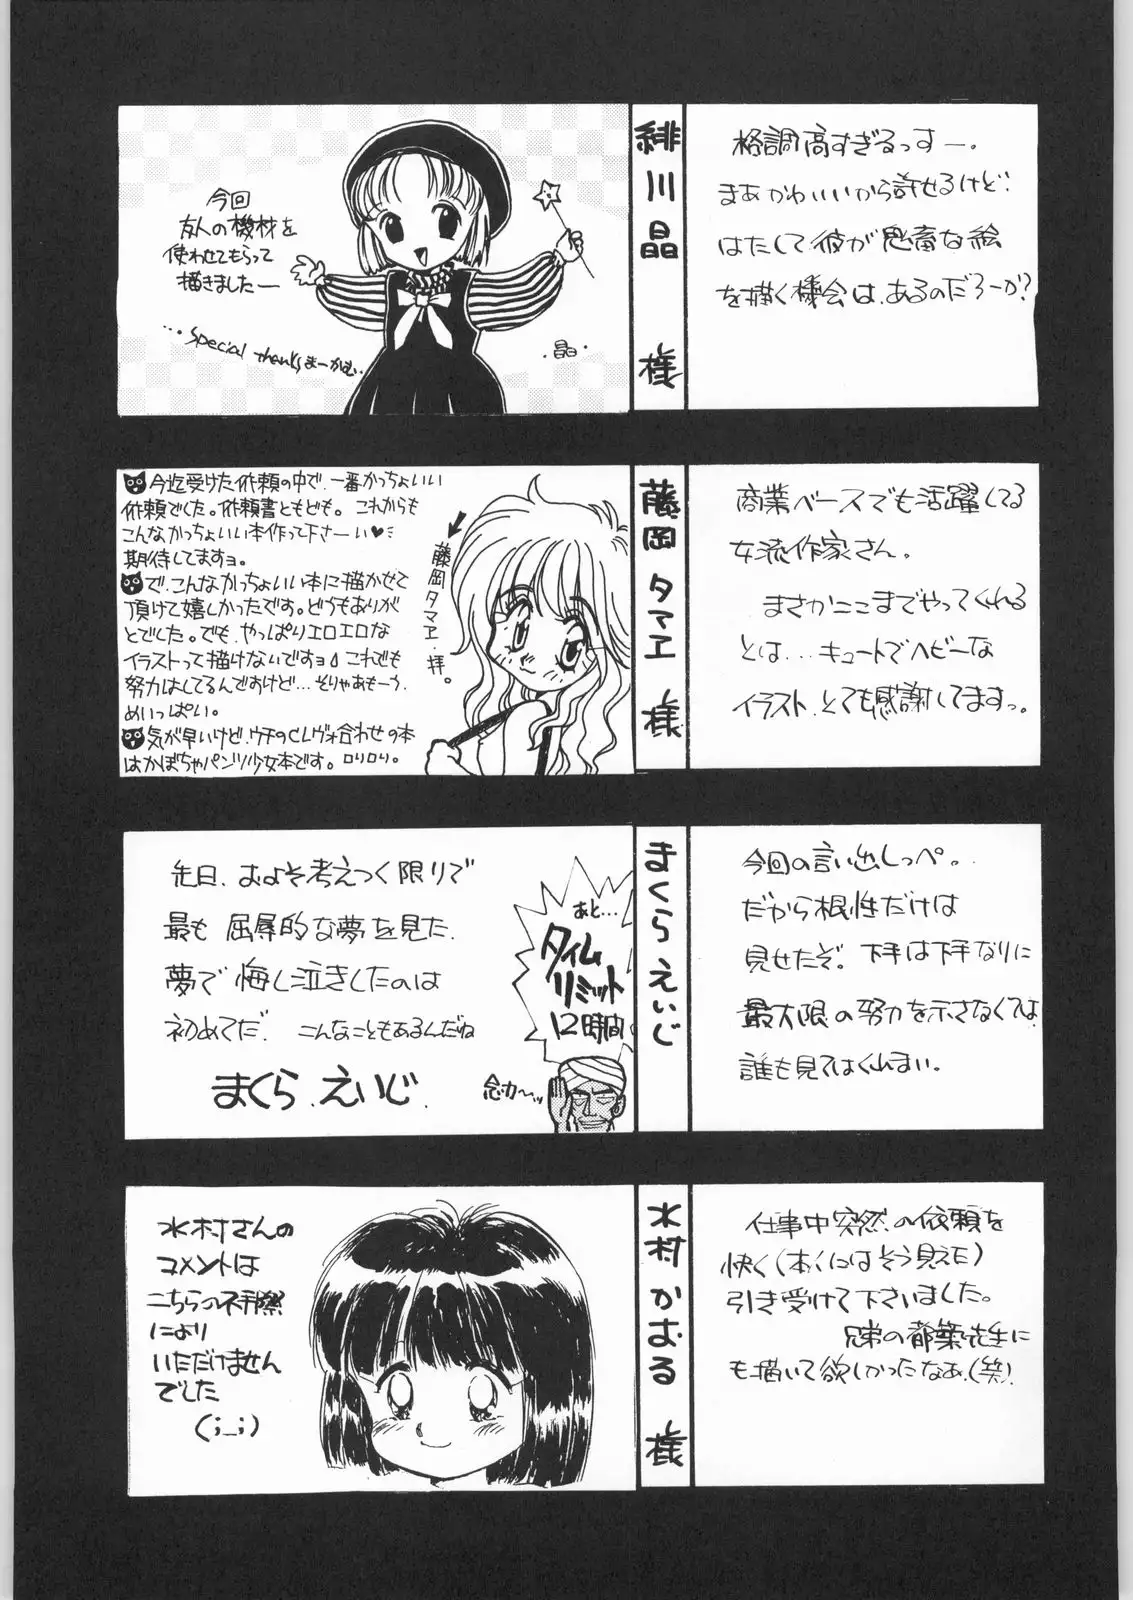 今回
友人の機材を
使わせてもらって
描きましたー
…Special thanksまーかむ…
・晶・
緋川晶 様
格調高すぎるっすー。
まあかわいいから許せるけど、
はたして彼が鬼畜な絵
を描く機会は、あるのだろーか?
今迄受けた依頼の中で、一番かっちょいい
依頼でした。依頼書ともども。これからも
こんなかっちょいい本作って下さーい♥
期待してますョ。
で、こんなかっちょいい本に描かせて
頂けて嬉しかったです。どうもありが
とでした。でも、やっぱりエロエロな
イラストって描けないですョ これでも
努力はしてるんですけど…そりゃあもーう、
めいっぱい。
気が早いけど、ウチのCレヴォ合わせの本
はかぼちゃパンツ少女本です。ロリロリ。
藤岡タマヱ・拝。
藤岡タマヱ 様
商業ベースでも活躍してる
女流作家さん。
まさかここまでやってくれる
とは…キュートでヘビーな
イラスト、とても感謝してますっ。
先日、およそ考えつく限りで
最も屈辱的な夢を見た。
夢で悔し泣きしたのは
初めてだ。こんなこともあるんだね
まくら.えいじ.
あと…
タイム
リミット
12時間
念力〜ッ
まくらえいじ
今回の言い出しっぺ。
だから根性だけは
見せたぞ。下手は下手なりに
最大限の努力を示さなくては、
誰も見てはくれまい。
水村さんの
コメントは
こちらの不手際
により
いただけません
でした
(;_;)
水村かおる 様
仕事中突然の依頼を
快く(本人にはそう見えた)
引き受けて下さいました。
兄弟の都築先生に
も描いて欲しかったなぁ.(笑)